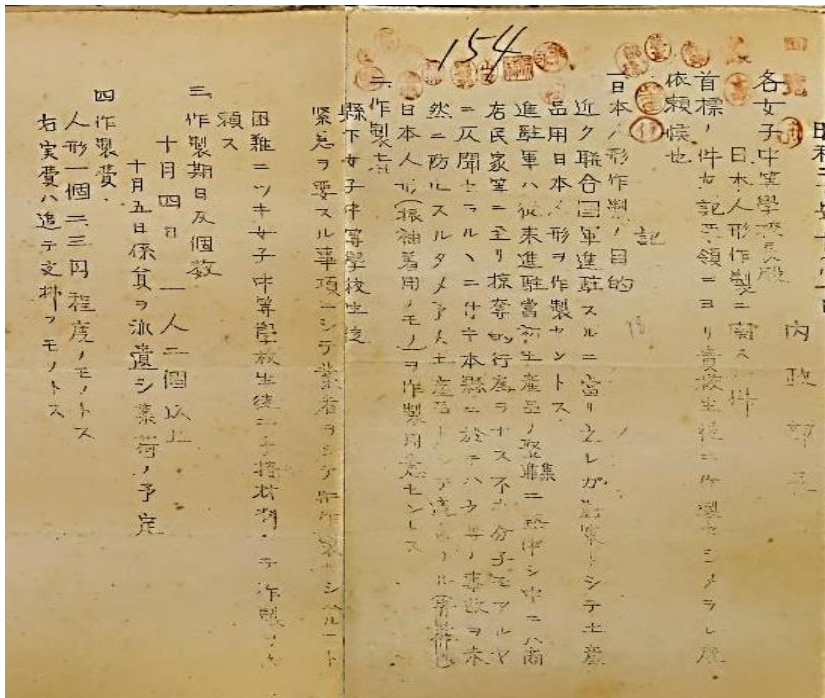 154
内政部長
各女子中等學校長殿
日本人形作製ニ関スル件
首標ノ件左記要領ニヨリ貴校生徒ニ作製セシメラレ度
依頼候也
記
一、日本人形作製ノ目的
近ク聯合國軍進駐スルニ當リ之レガ對策トシテ土産
品用日本人形ヲ作製セントス
進駐軍ハ従来進駐當初土産品ノ蒐集ニ熱中シ中ニハ商
店民家等ニ至リ掠奪的行為ヲナス不良分子モアルヤ
ニ仄聞セラルルニ付キ本縣ニ於テハ
事故ヲ未
然ニ防ルスルタメ
土産品トシテ
日本人形(振袖着用ノモノ)ヲ作製用意セントス
二、作製者
縣下女子中等學校生徒
緊急ヲ要スル事項ニシテ業者ヲシテ
困難ニツキ女子中等學校生徒ニ手持材料ニテ作製
頼ス
三、作製期日及個数
十月四日 一人二個以上
十月五日係員ヲ派遣シ集荷ノ予定
四、作製費
人形一個二、三円程度ノモノトス
右実費ハ追テ支拂フモノトス